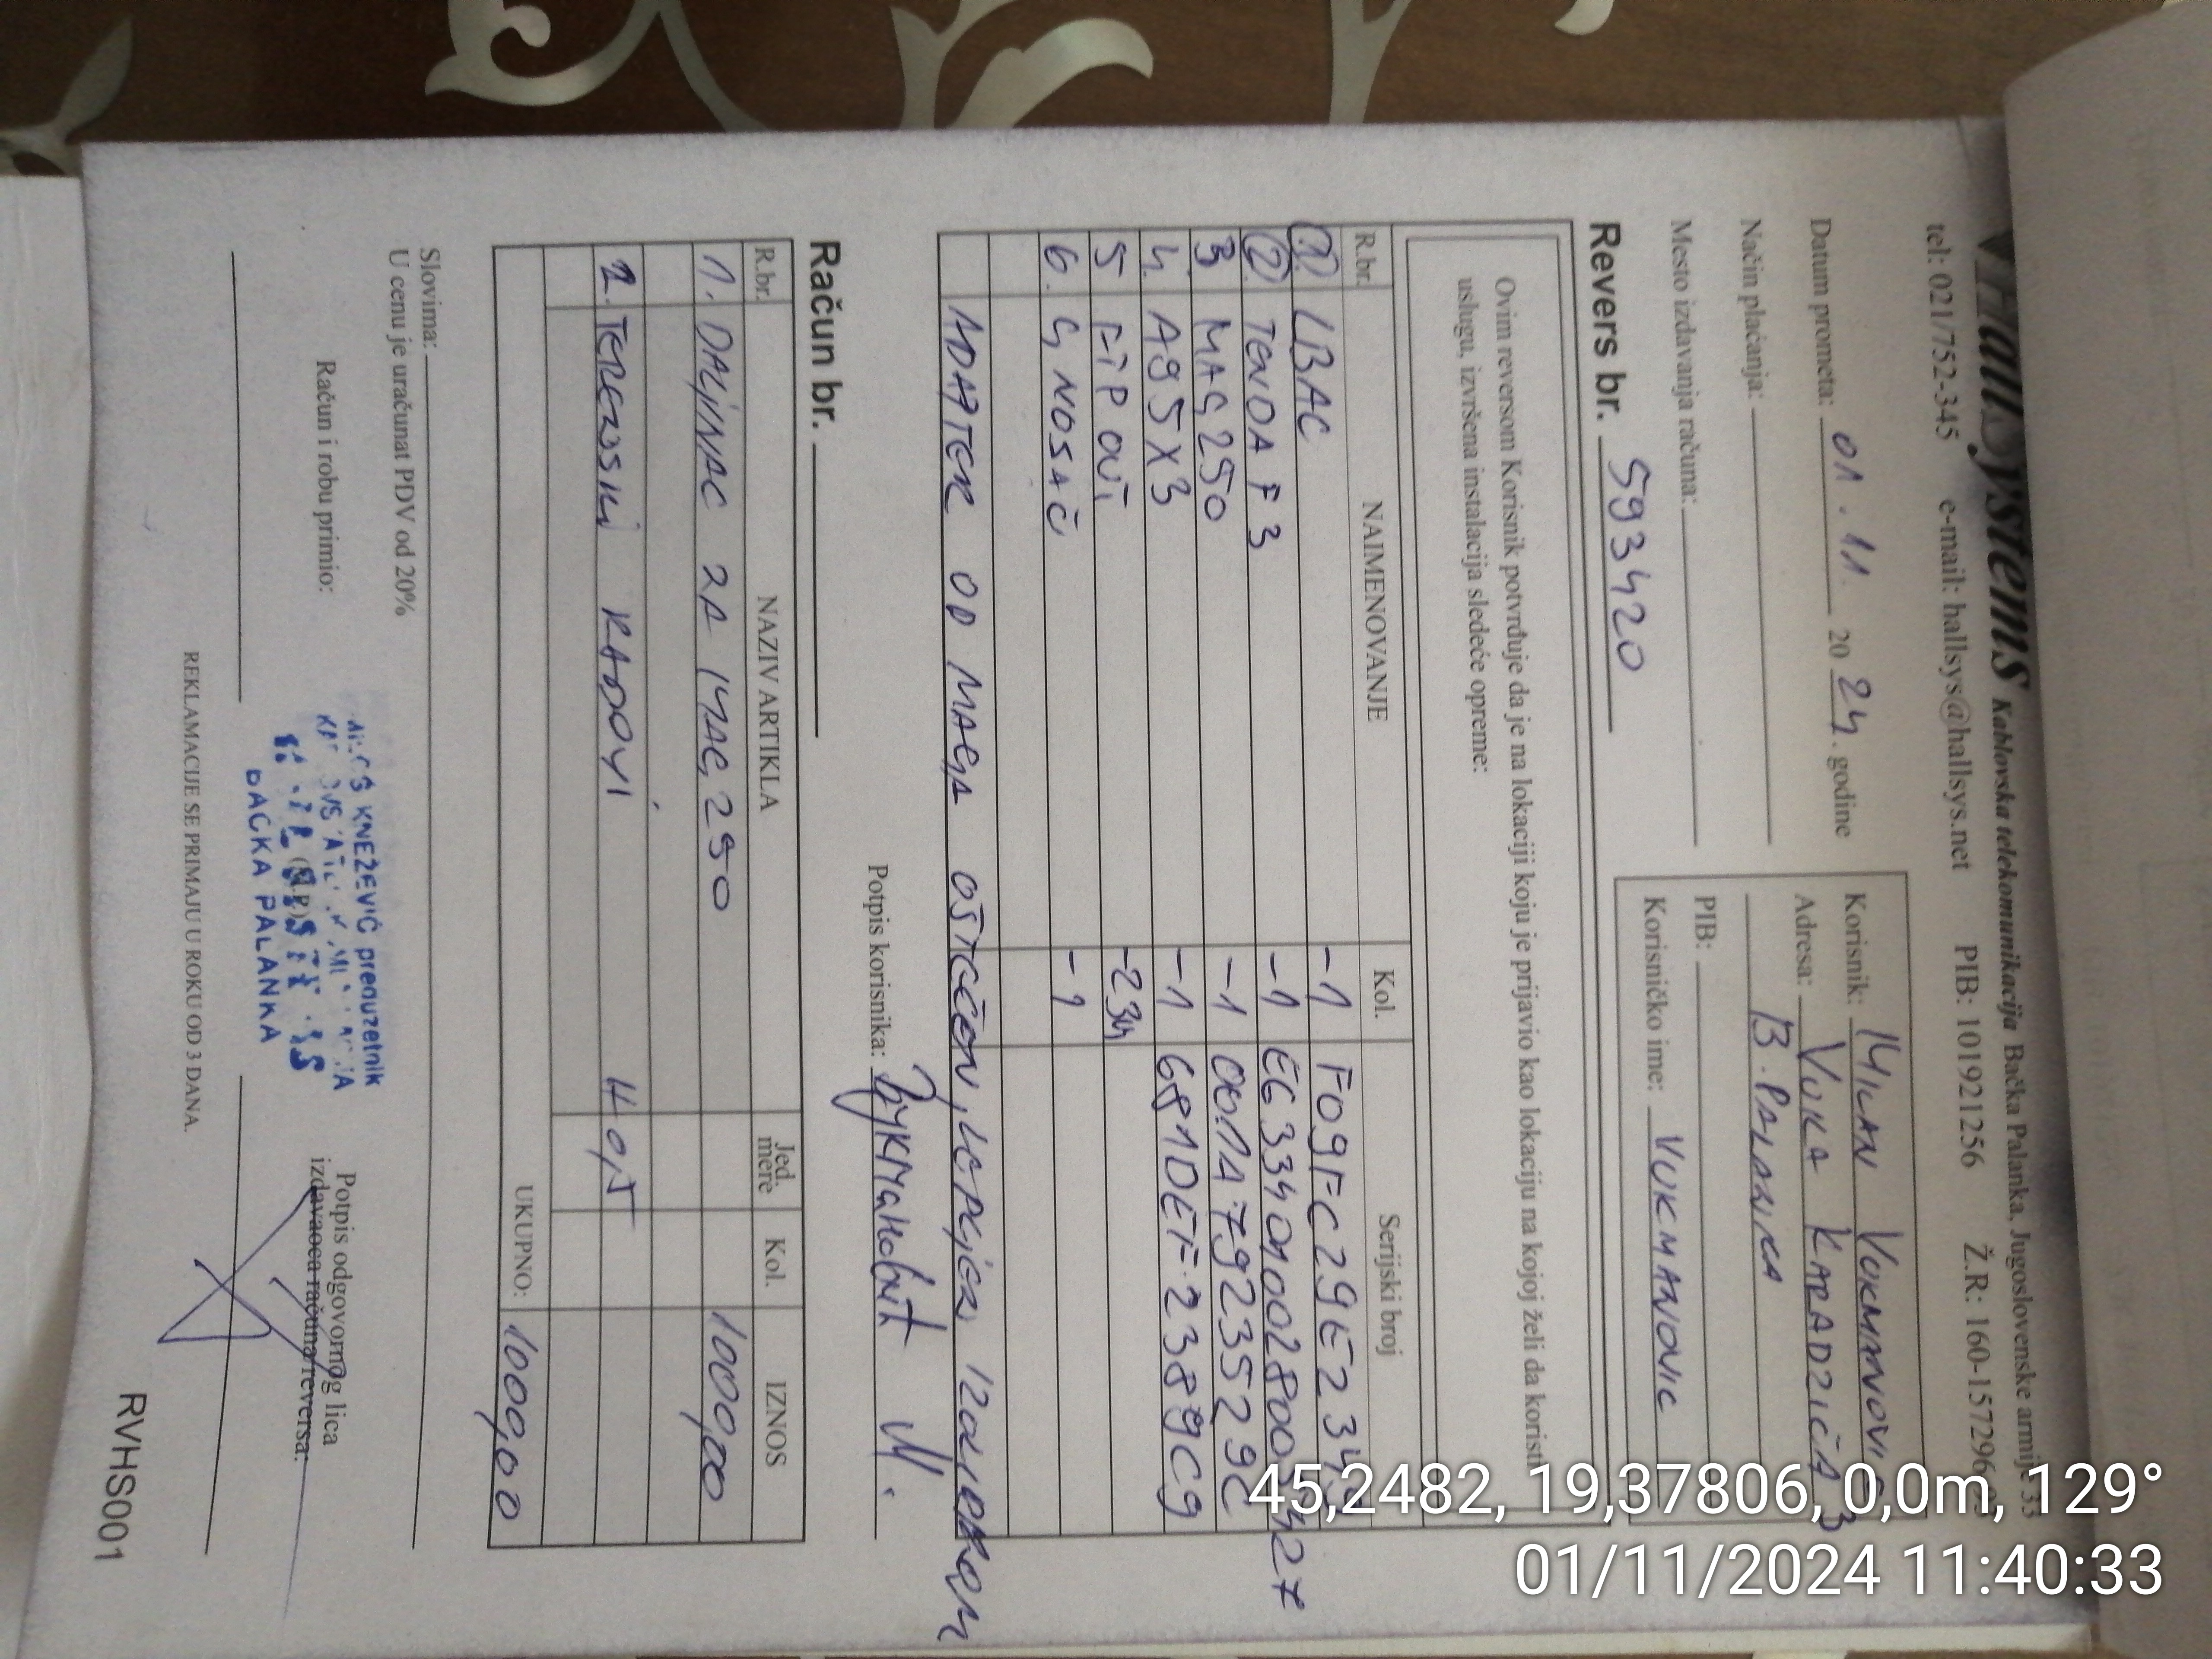 HallSystems Kablovska telekomunikacija Bačka Palanka, Jugoslovenske armije 33
tel: 021/752-345 e-mail: hallsys@hallsys.net PIB: 101921256 Ž.R: 160-157296
Datum prometa: 01. 11. 20 24. godine
Način plaćanja:
Mesto izdavanja računa:
Korisnik: MILAN VUKMANOVIC
Adresa: VUKA KARADZIĆA 3
B. PALANKA
PIB:
Korisničko ime: VUKMANOVIC
Revers br. 593420
Ovim reversom Korisnik potvrđuje da je na lokaciji koju je prijavio kao lokaciju na kojoj želi da koristi
uslugu, izvršena instalacija sledeće opreme:
R.br. NAIMENOVANJE Kol. Serijski broj
1. LBAC -1 F09FC29E234
2. TENDA F3 -1
3 MAG 250 -1 001A7923529C
4. A95X3 -1 681DEF2389C9
5 -234
6. G NOSAČ -1
ADAPTER OD MAGA OŠTEĆEN,
Potpis korisnika: Вукмановић М.
Račun br.
R.br. NAZIV ARTIKLA Jed. mere Kol. IZNOS
1. DALJINAC ZA MAG 250 1000,00
2. TERENSKI RADOVI
UKUPNO: 1000,00
Slovima:
U cenu je uračunat PDV od 20%
Račun i robu primio:
KNEŽEVIĆ preduzetnik
(M.P.)
BAČKA PALANKA
Potpis odgovornog lica
izdavaoca računa/reversa:
REKLAMACIJE SE PRIMAJU U ROKU OD 3 DANA.
RVHS001
45,2482, 19,37806, 0,0m, 129°
01/11/2024 11:40:33